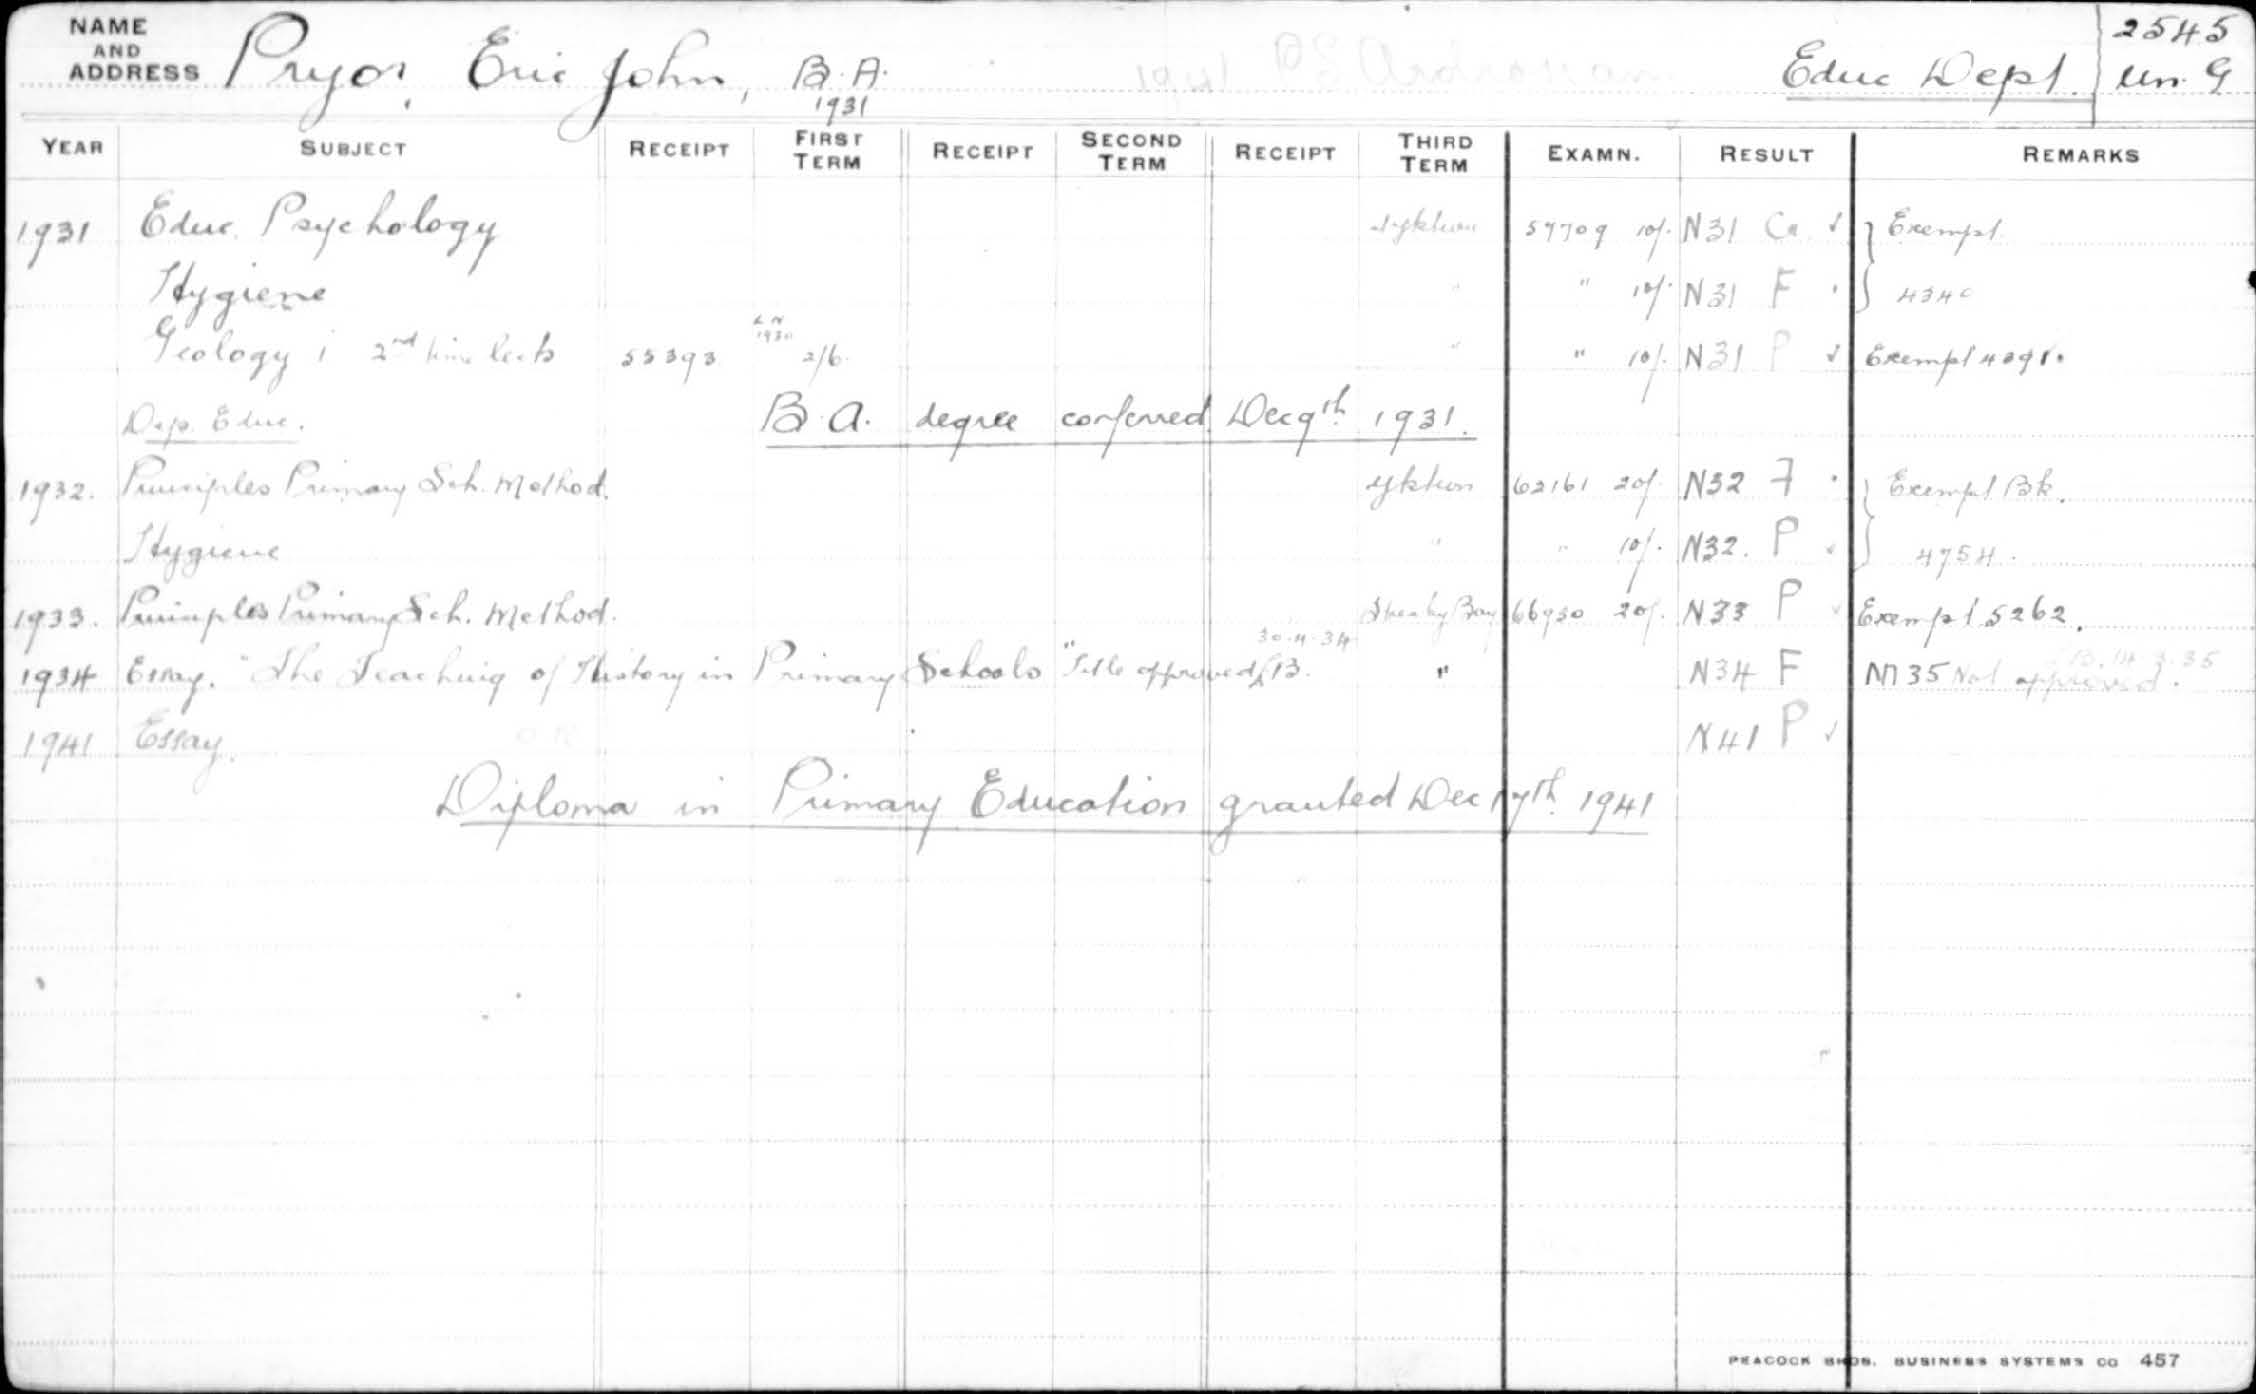 NAME AND ADDRESS Pryor, Eric John, B.A. 1931 Educ Dept. 2545 Un. G
YEAR SUBJECT RECEIPT FIRST TERM RECEIPT SECOND TERM RECEIPT THIRD TERM EXAMN. RESULT REMARKS
1931 Educ. Psychology 57709 10/- N31 Cr. ✓ } Exempt
Hygiene " " 10/- N31 F } 4340
Geology i 2nd time lects 55393 1930 2/6 " " 10/- N31 P ✓ Exempt 4391.
Dip. Educ. B.A. degree conferred Dec 9th 1931.
1932. Principles Primary Sch. Method. Ykton 62161 20/- N32 F } Exempt Bk.
Hygiene " " 10/- N32. P } 4754.
1933. Principles Primary Sch. Method. Streaky Bay 66950 20/- N33 P Exempt 5262.
1934 Essay. "The Teaching of History in Primary Schools" Title approved 30.4.34 " N34 F M35 Not approved. 3.35
1941 Essay. N41 P ✓
Diploma in Primary Education granted Dec 17th 1941
PEACOCK BROS. BUSINESS SYSTEMS CO 457